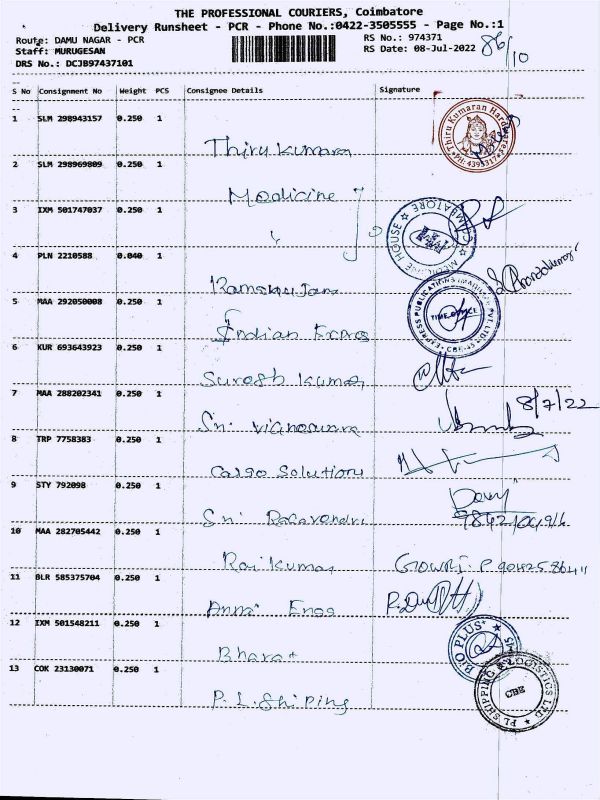 THE PROFESSIONAL COURIERS, Coimbatore
Delivery Runsheet - PCR - Phone No.:0422-3505555 - Page No.:1
Route: DAMU NAGAR - PCR
RS No.: 974371
Staff: MURUGESAN
RS Date: 08-Jul-2022
86/10
DRS No.: DCJB97437101
S No Consignment No Weight PCS Consignee Details Signature
1 SLM 298943157 0.250 1
Thiru Kumara
Thiru Kumaran Hardwares
PH: 4395317
2 SLM 298969809 0.250 1
Medicine
3 IXM 501747037 0.250 1
MEDICINE HOUSE ★ COIMBATORE ★
4 PLN 2210588 0.040 1
5 MAA 292050008 0.250 1
Indian Expres
EXPRESS PUBLICATIONS (MADURAI) PVT LTD
TIME OFFICE
6 KUR 693643923 0.250 1
Suresh Kumar
7 MAA 288202341 0.250 1
Sri
8/7/22
8 TRP 7758383 0.250 1
Cargo Solutions
9 STY 792098 0.250 1
Sri Ragavendri
10 MAA 282705442 0.250 1
Raj Kumar
GOWRI. P
11 BLR 585375704 0.250 1
Annai Engg
12 IXM 501548211 0.250 1
Bharat
BIO PLUS+
13 COK 23130071 0.250 1
P.L. Shiping
PL SHIPPING & LOGISTICS LTD
CBE